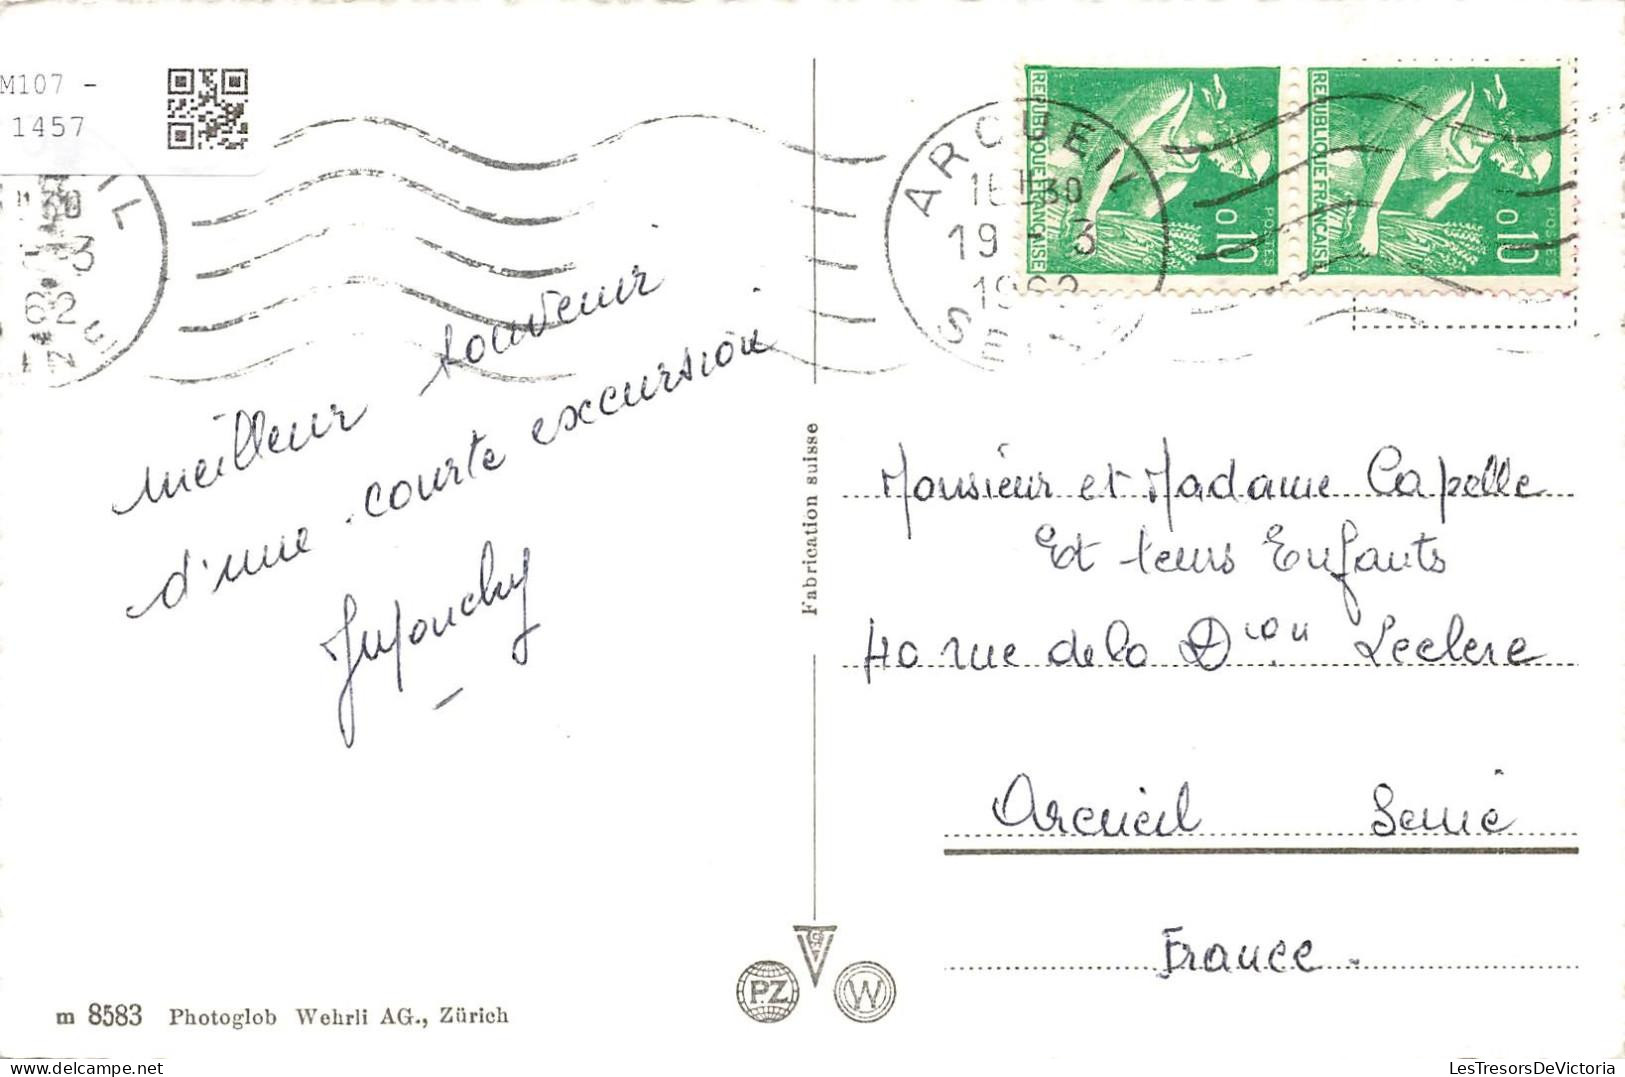 M107 -
1457
ARCUEIL
16H30
19 - 3
1962
SEINE
REPUBLIQUE FRANÇAISE
0,10
POSTES
REPUBLIQUE FRANÇAISE
0,10
POSTES
IL
H30
3
62
NE
meilleur souvenir
d'une courte excursion
Fabrication suisse
Monsieur et Madame Capelle
Et leurs Enfants
40 rue de la Dion Leclerc
Arcueil Seine
France.
PZ
W
m 8583 Photoglob Wehrli AG., Zürich
LesTresorsDeVictoria